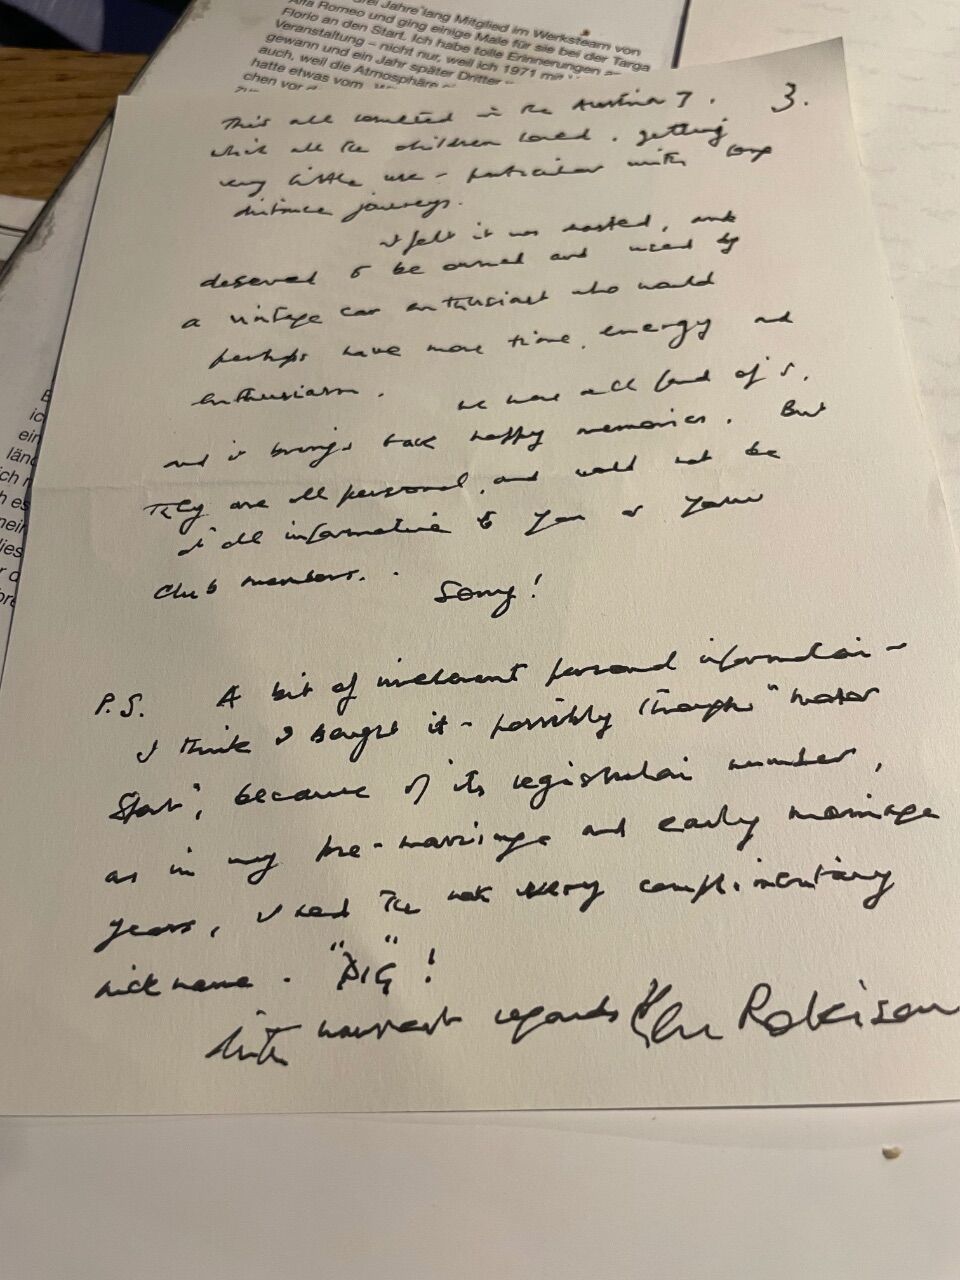 drei Jahre lang Mitglied im Werksteam von
Alfa Romeo und ging einige Male für sie bei der Targa
Florio an den Start. Ich habe tolle Erinnerungen
Veranstaltung – nicht nur, weil ich 1971
gewann und ein Jahr später Dritter
auch, weil die Atmosphäre
hatte etwas vom
chen vor
3.
This all resulted in the Austin 7.
which all the children loved. getting
very little use - particular with long
distance journeys.
I felt it was wasted, and
deserved to be owned and used by
a vintage car enthusiast who would
perhaps have more time, energy and
enthusiasm. We were all fond of it,
and it brings back happy memories. But
They are all personal, and would not be
at all informative to you or your
Club members.
Sorry!
P.S. A bit of irrelevant personal information -
I think I bought it - possibly through "Motor
Sport", because of its registration number,
as in my pre-marriage and early marriage
years, I had the not very complimentary
nickname. "PIG"!
With warmest regards
Robinson